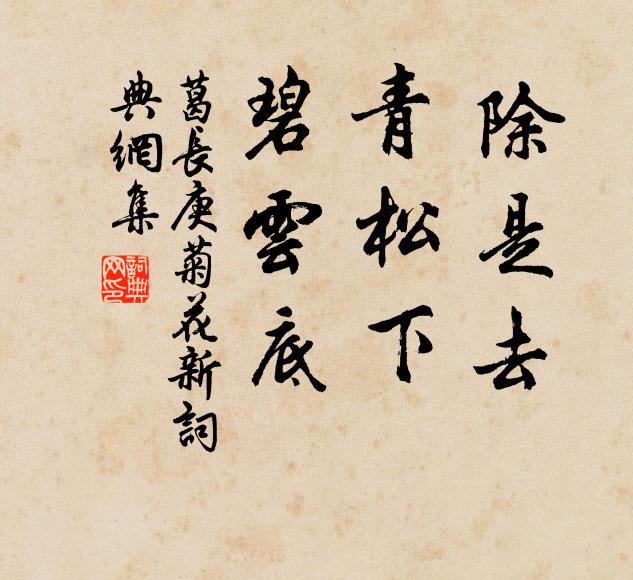 除是去
青松下
碧雲底
葛長庚菊花新詞
典網集
詞典
网印